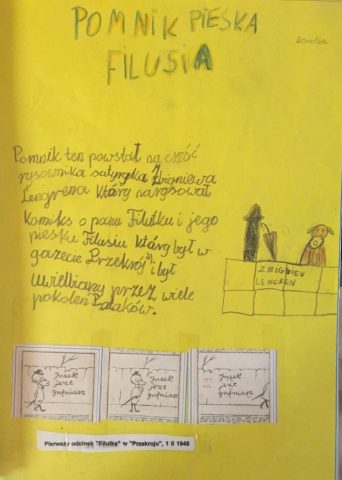 POMNIK PIESKA
FILUSIA
Pomnik ten powstał na cześć
rysownika satyryka Zbigniewa
Lengrena który narysował
Komiks o panu Filutku i jego
piesku Filusiu który był w
gazecie "Przekrój" i był
uwielbiany przez wiele
pokoleń Polaków.
ZBIGNIEW
LENGREN
Jusek
jest
gupniasz
Jusek
jest
gupniasz
Jusek
jest
gupniasz
Pierwszy odcinek "Filutka" w "Przekroju", 1 II 1948